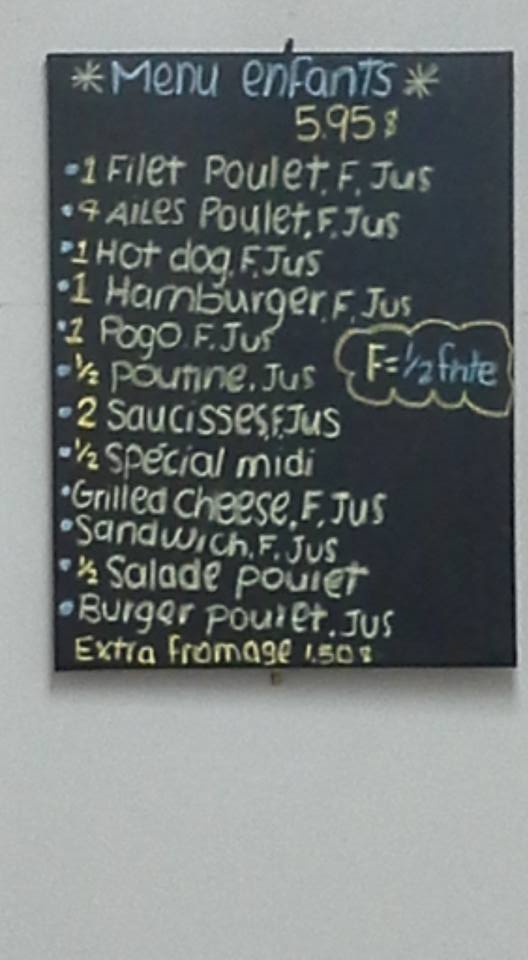 *Menu enfants*
5.95$
•1 Filet Poulet, F, Jus
•4 AILES Poulet, F, Jus
•1 Hot dog, F, Jus
•1 Hamburger, F, Jus
•1 Pogo, F, Jus
F=1/2 frite
•1/2 poutine, Jus
•2 Saucisses, F, Jus
•1/2 spécial midi
•Grilled Cheese, F, Jus
•Sandwich, F, Jus
•1/2 Salade poulet
•Burger poulet, Jus
Extra fromage 1.50$